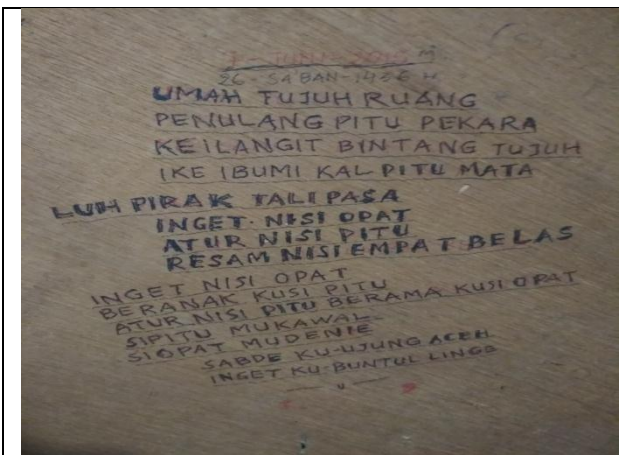 26 - SA'BAN - 1436 H
UMAH TUJUH RUANG
PENULANG PITU PEKARA
KEILANGIT BINTANG TUJUH
IKE IBUMI KAL PITU MATA
LUH PIRAK TALI PASA
INGET. NISI OPAT
ATUR NISI PITU
RESAM NISI EMPAT BELAS
INGET NISI OPAT
BERANAK KUSI PITU
ATUR NISI PITU BERAMA KUSI OPAT
SIPITU MUKAWAL
SIOPAT MUDENIE
SABDE KU-UJUNG ACEH
INGET KU-BUNTUL LINGE